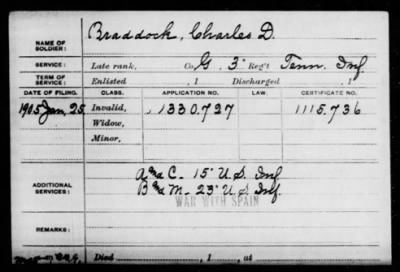 NAME OF SOLDIER: Braddock, Charles D.
SERVICE: Late rank, Co. G. 3" Reg't Tenn. Inf
TERM OF SERVICE: Enlisted , 1 Discharged , 1
DATE OF FILING. CLASS. APPLICATION NO. LAW. CERTIFICATE NO.
1905 Jan. 25 Invalid, 1330.727 1115.736
Widow,
Minor,
ADDITIONAL SERVICES: C - 15" U.S. Inf
M - 23" U.S. Inf.
WAR WITH SPAIN
REMARKS:
Died , 1 , at